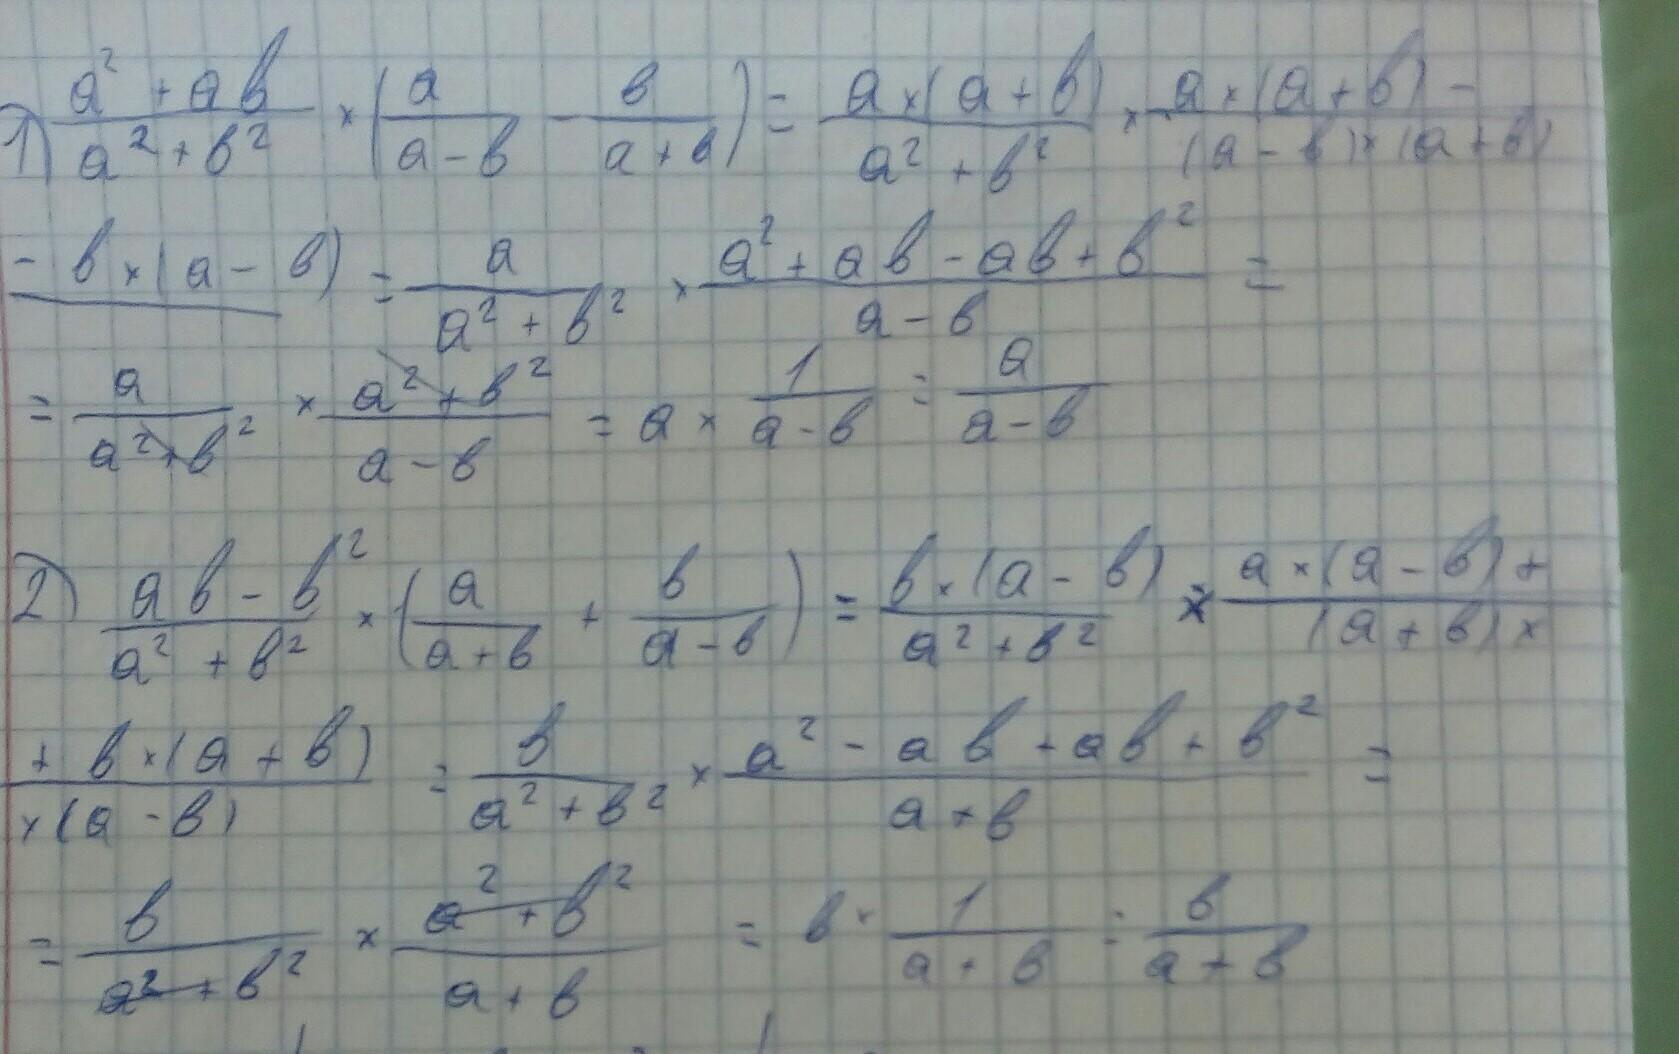 1) (a² + ab)/(a² + b²) × (a/(a - b) - b/(a + b)) = (a × (a + b))/(a² + b²) × (a × (a + b) -)/((a - b) × (a + b))
(- b × (a - b))/ = a/(a² + b²) × (a² + ab - ab + b²)/(a - b) =
= a/(a² + b²) × (a² + b²)/(a - b) = a × 1/(a - b) = a/(a - b)
2) (ab - b²)/(a² + b²) × (a/(a + b) + b/(a - b)) = (b × (a - b))/(a² + b²) × (a × (a - b) +)/((a + b) ×)
(+ b × (a + b))/(× (a - b)) = b/(a² + b²) × (a² - ab + ab + b²)/(a + b) =
= b/(a² + b²) × (a² + b²)/(a + b) = b · 1/(a + b) = b/(a + b)